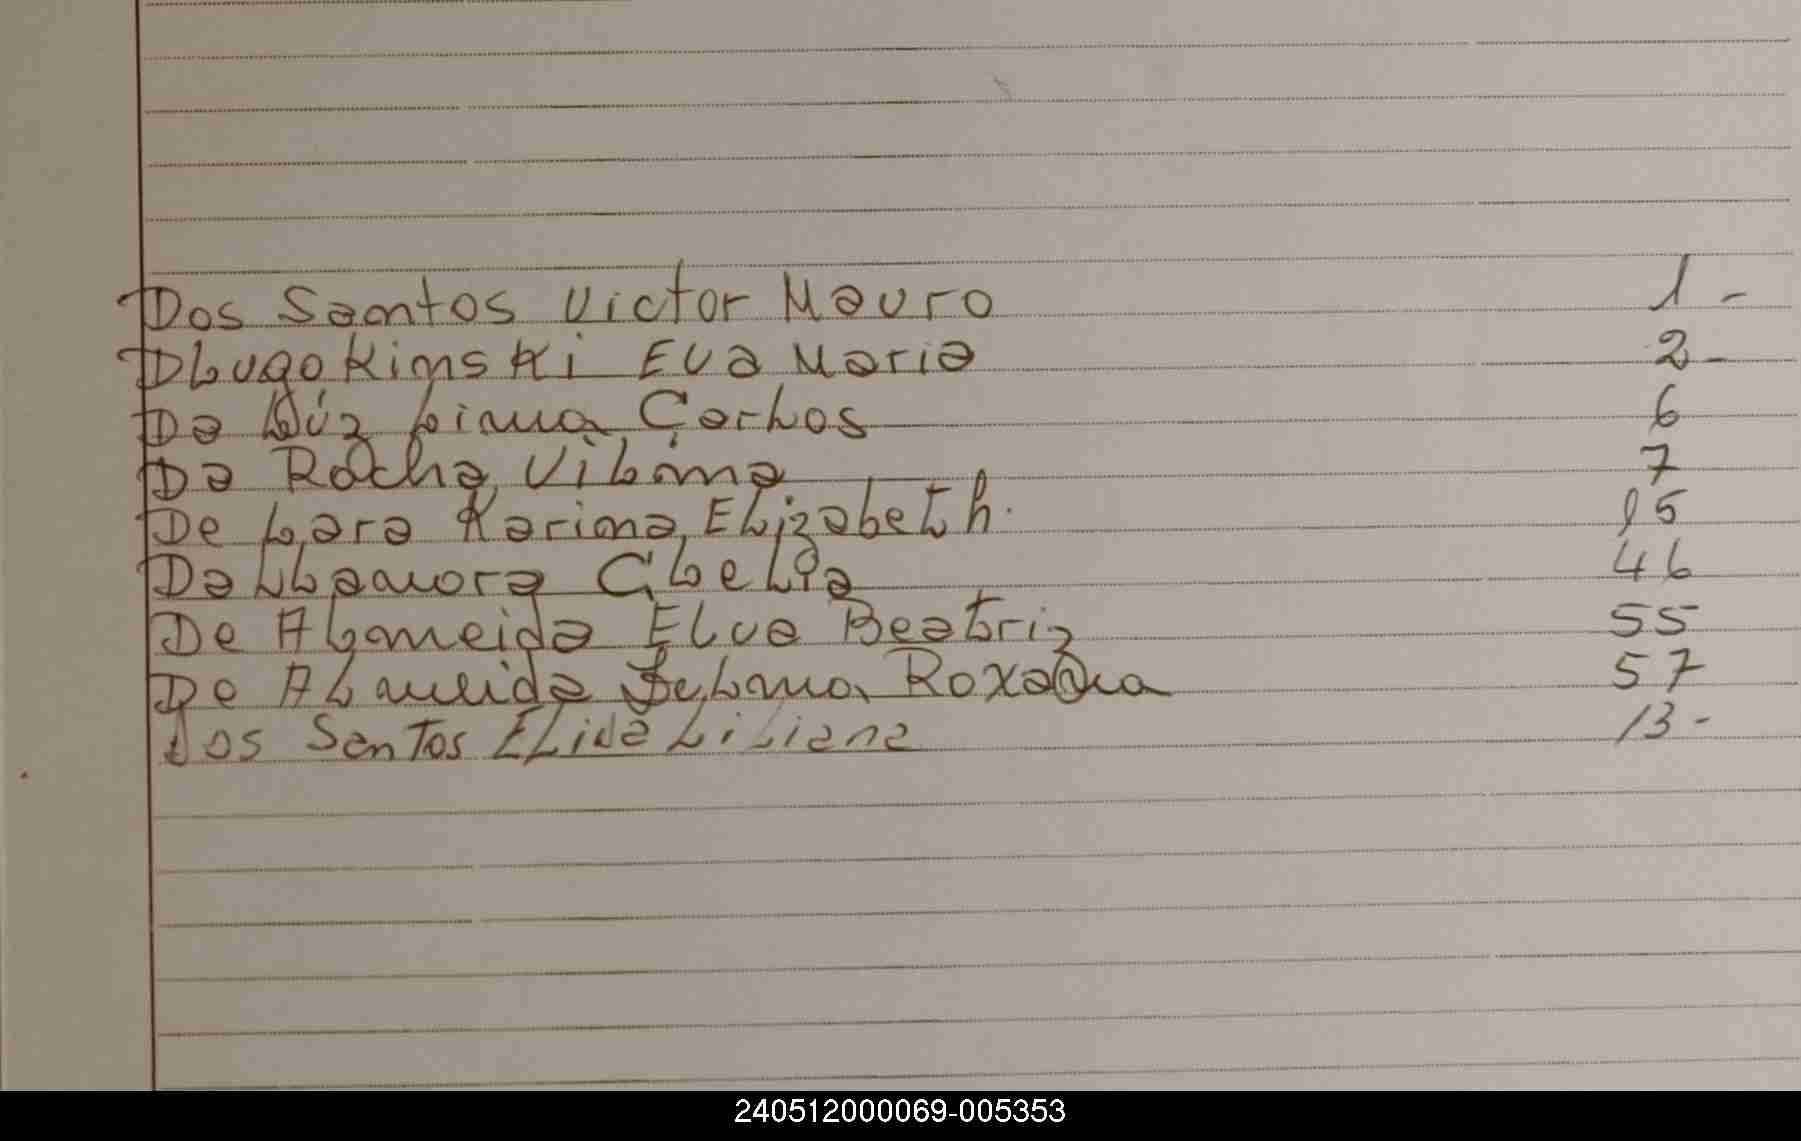 Dos Santos Victor Mauro 1 -
Dlugokinski Eva Maria 2 -
Da Lúz Lima, Carlos 6
Da Rocha, Vilma 7
De Lara Karina, Elizabeth. 15
Dallamora Clelia 46
De Almeida Elva Beatriz 55
De Almeida Selma Roxana 57
Dos Santos Elida Liliana 13 -
240512000069-005353